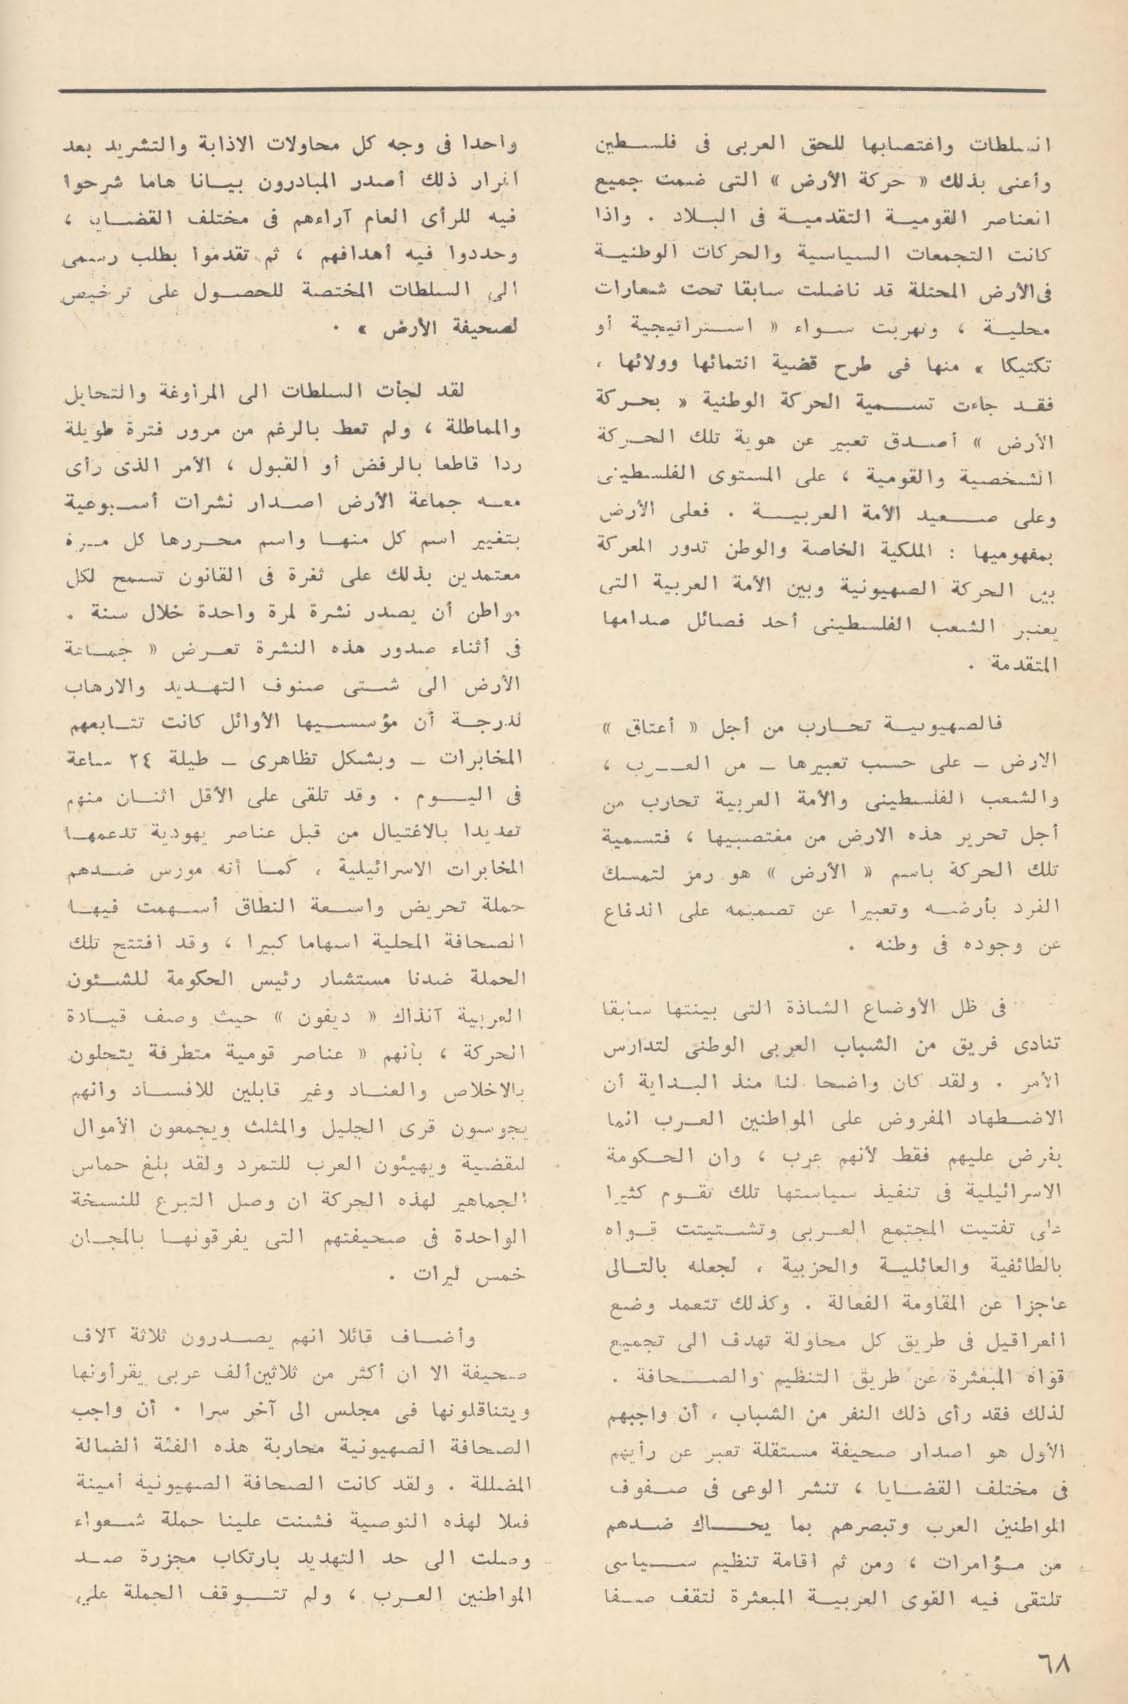 السلطات واغتصابها للحق العربى فى فلسطين
وأعنى بذلك « حركة الأرض » التى ضمت جميع
العناصر القومية التقدمية فى البلاد . واذا
كانت التجمعات السياسية والحركات الوطنية
فى الأرض المحتلة قد ناضلت سابقا تحت شعارات
محلية ، وتهربت سواء « استراتيجية أو
تكتيكا » منها فى طرح قضية انتمائها وولائها ،
فقد جاءت تسمية الحركة الوطنية « بحركة
الأرض » أصدق تعبير عن هوية تلك الحركة
الشخصية والقومية ، على المستوى الفلسطينى
وعلى صعيد الأمة العربية . فعلى الأرض
بمفهوميها : الملكية الخاصة والوطن تدور المعركة
بين الحركة الصهيونية وبين الأمة العربية التى
يعتبر الشعب الفلسطينى أحد فصائل صدامها
المتقدمة .
فالصهيونية تحارب من أجل « أعتاق »
الارض – على حسب تعبيرها – من العرب ،
والشعب الفلسطينى والأمة العربية تحارب من
أجل تحرير هذه الارض من مغتصبيها ، فتسمية
تلك الحركة باسم « الأرض » هو رمز لتمسك
الفرد بأرضه وتعبيرا عن تصميمه على الدفاع
عن وجوده فى وطنه .
فى ظل الأوضاع الشاذة التى بينتها سابقا
تنادى فريق من الشباب العربى الوطنى لتدارس
الأمر . ولقد كان واضحا لنا منذ البداية أن
الاضطهاد المفروض على المواطنين العرب انما
يفرض عليهم فقط لأنهم عرب ، وان الحكومة
الاسرائيلية فى تنفيذ سياستها تلك تقوم كثيرا
على تفتيت المجتمع العربى وتشتيتت قواه
بالطائفية والعائلية والحزبية ، لجعله بالتالى
عاجزا عن المقاومة الفعالة . وكذلك تتعمد وضع
العراقيل فى طريق كل محاولة تهدف الى تجميع
قواه المبعثرة عن طريق التنظيم والصحافة .
لذلك فقد رأى ذلك النفر من الشباب ، أن واجبهم
الأول هو اصدار صحيفة مستقلة تعبر عن رأيهم
فى مختلف القضايا ، تنشر الوعى فى صفوف
المواطنين العرب وتبصرهم بما يحاك ضدهم
من مؤامرات ، ومن ثم اقامة تنظيم سياسى
تلتقى فيه القوى العربية المبعثرة لتقف صفا
واحدا فى وجه كل محاولات الاذابة والتشريد بعد
اقرار ذلك أصدر المبادرون بيانا هاما شرحوا
فيه للرأى العام آراءهم فى مختلف القضايا ،
وحددوا فيه أهدافهم ، ثم تقدموا بطلب رسمى
الى السلطات المختصة للحصول على ترخيص
لصحيفة الأرض » .
لقد لجأت السلطات الى المرأوغة والتحايل
والمماطلة ، ولم تعط بالرغم من مرور فترة طويلة
ردا قاطعا بالرفض أو القبول ، الأمر الذى رأى
معه جماعة الأرض اصدار نشرات أسبوعية
بتغيير اسم كل منها واسم محررها كل مرة
معتمدين بذلك على ثغرة فى القانون تسمح لكل
مواطن أن يصدر نشرة لمرة واحدة خلال سنة .
فى أثناء صدور هذه النشرة تعرض « جماعة
الأرض الى شتى صنوف التهديد والارهاب
لدرجة أن مؤسسيها الأوائل كانت تتابعهم
المخابرات – وبشكل تظاهرى – طيلة ٢٤ ساعة
فى اليوم . وقد تلقى على الأقل اثنان منهم
تهديدا بالاغتيال من قبل عناصر يهودية تدعمها
المخابرات الاسرائيلية ، كما أنه مورس ضدهم
حملة تحريض واسعة النطاق أسهمت فيها
الصحافة المحلية اسهاما كبيرا ، وقد افتتح تلك
الحملة ضدنا مستشار رئيس الحكومة للشئون
العربية آنذاك « ديفون » حيث وصف قيادة
الحركة ، بأنهم « عناصر قومية متطرفة يتحلون
بالاخلاص والعناد وغير قابلين للافساد وانهم
يجوسون قرى الجليل والمثلث ويجمعون الأموال
للقضية ويهيئون العرب للتمرد ولقد بلغ حماس
الجماهير لهذه الحركة ان وصل التبرع للنسخة
الواحدة فى صحيفتهم التى يفرقونها بالمجان
خمس ليرات .
وأضاف قائلا انهم يصدرون ثلاثة آلاف
صحيفة الا ان أكثر من ثلاثين ألف عربى يقرأونها
ويتناقلونها فى مجلس الى آخر سرا . أن واجب
الصحافة الصهيونية محاربة هذه الفئة الضالة
المضللة . ولقد كانت الصحافة الصهيونية أمينة
فعلا لهذه التوصية فشنت علينا حملة شعواء
وصلت الى حد التهديد بارتكاب مجزرة ضد
المواطنين العرب ، ولم تتوقف الحملة على
٦٨